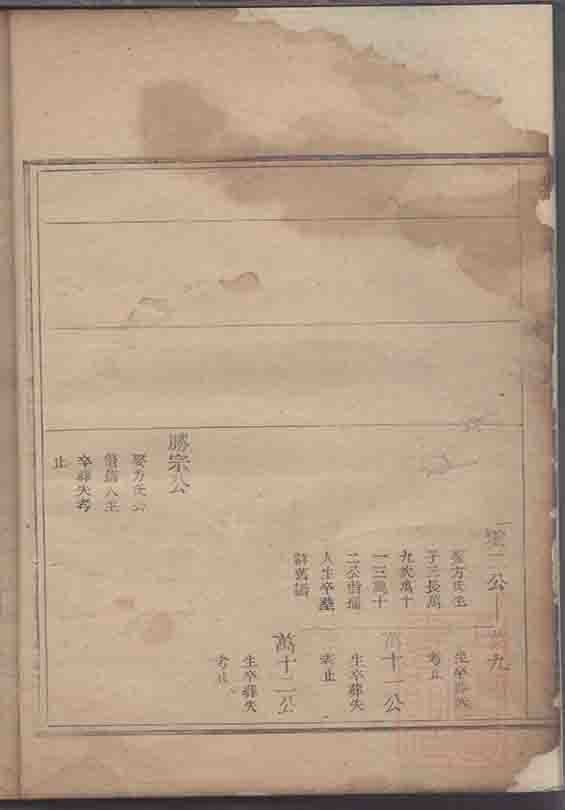 二公
娶方氏生
子三長萬
九次萬十
一三萬十
二公
人生卒塟
詳舊譜
九
生卒葬失
考止
萬十一公
生卒葬失
考止
萬十二公
生卒葬失
考止
勝宗公
娶方氏公
人生
卒葬失考
止